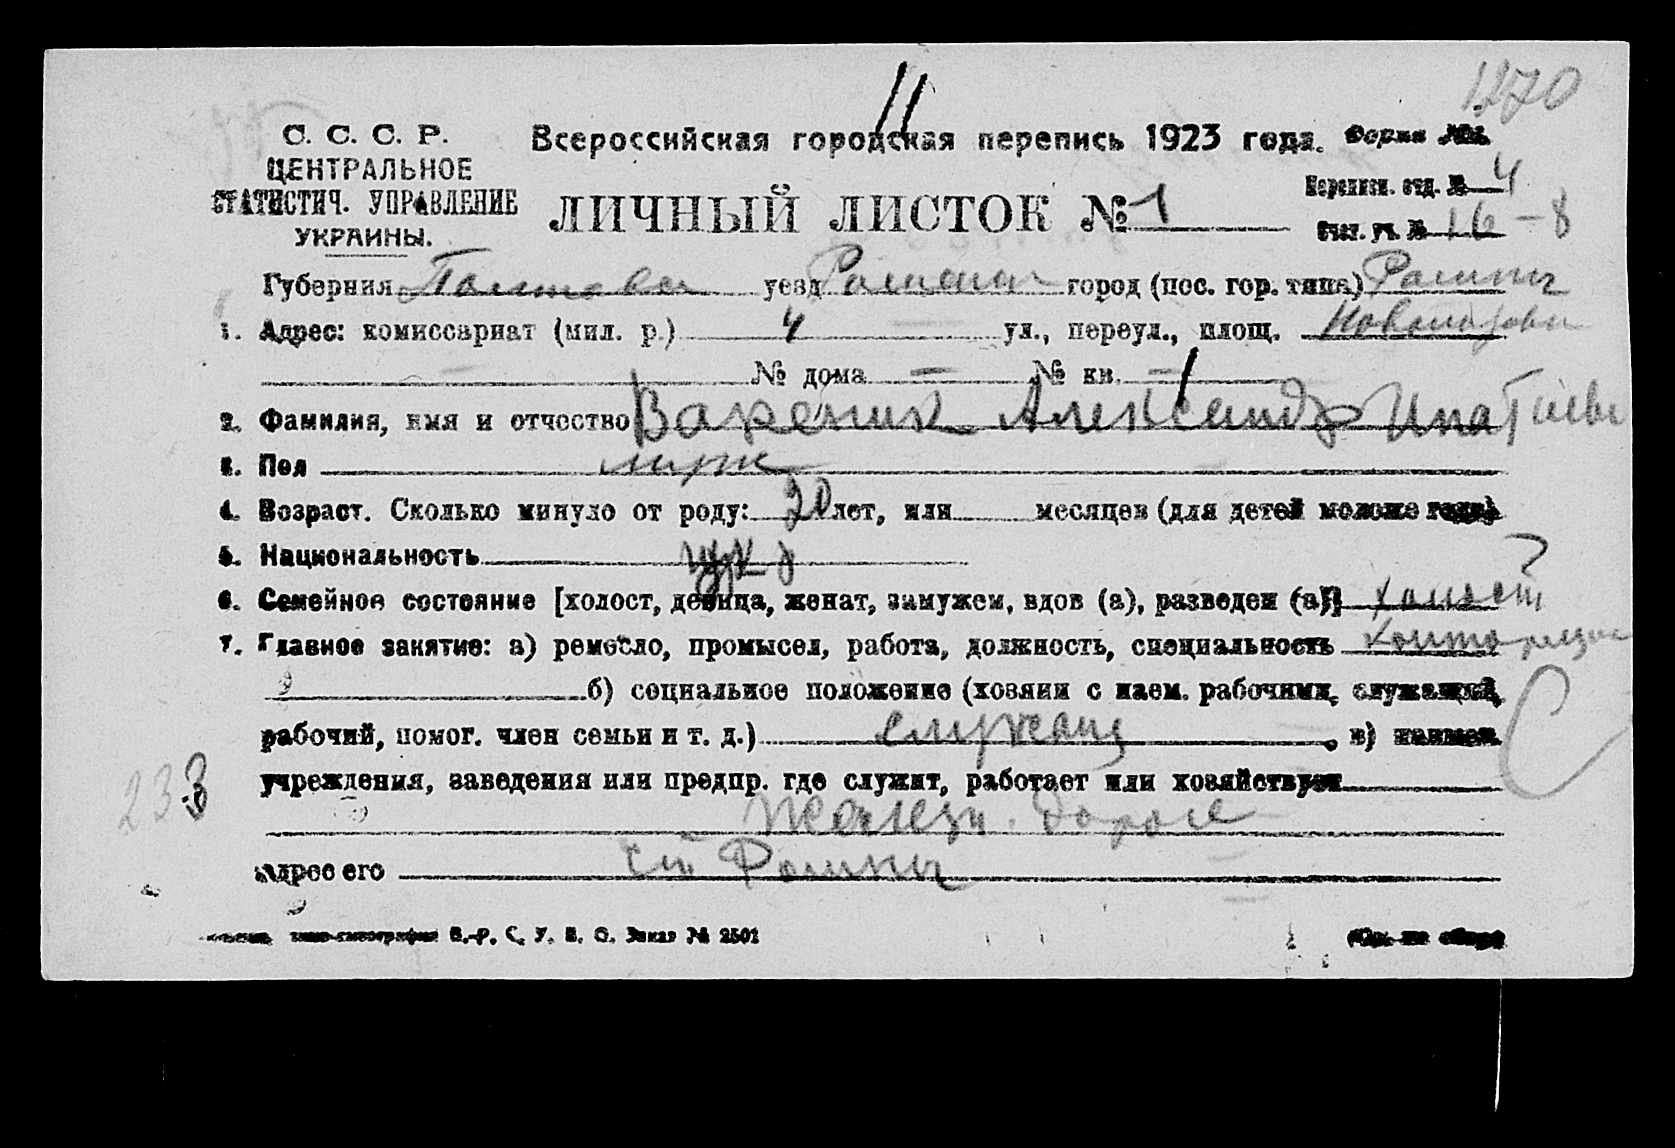 1270
С. С. С. Р.
ЦЕНТРАЛЬНОЕ
СТАТИСТИЧ. УПРАВЛЕНИЕ
УКРАИНЫ.
Всероссийская городская перепись 1923 года. Форма
ЛИЧНЫЙ ЛИСТОК № 1
Переписн. отд. № 4
Счет. уч. № 16-8
Губерния Полтава уезд город (пос. гор. типа) Ромны
1. Адрес: комиссариат (мил. р.) 4 ул., переул., площ.
№ дома — № кв. —
2. Фамилия, имя и отчество Вареник Александр Ипатьев
3. Пол муж
4. Возраст. Сколько минуло от роду: 20 лет, или месяцев (для детей моложе года)
5. Национальность укр
6. Семейное состояние [холост, девица, женат, замужем, вдов (а), разведен (а)] холост
7. Главное занятие: а) ремесло, промысел, работа, должность, специальность конторщик
б) социальное положение (хозяин с наем. рабочими, служащий,
рабочий, помог. член семьи и т. д.) служащ , в) наимен.
учреждения, заведения или предпр. где служит, работает или хозяйствует
Железн. дорога
233
адрес его ст Ромны
С. У. В. О. Заказ № 2501